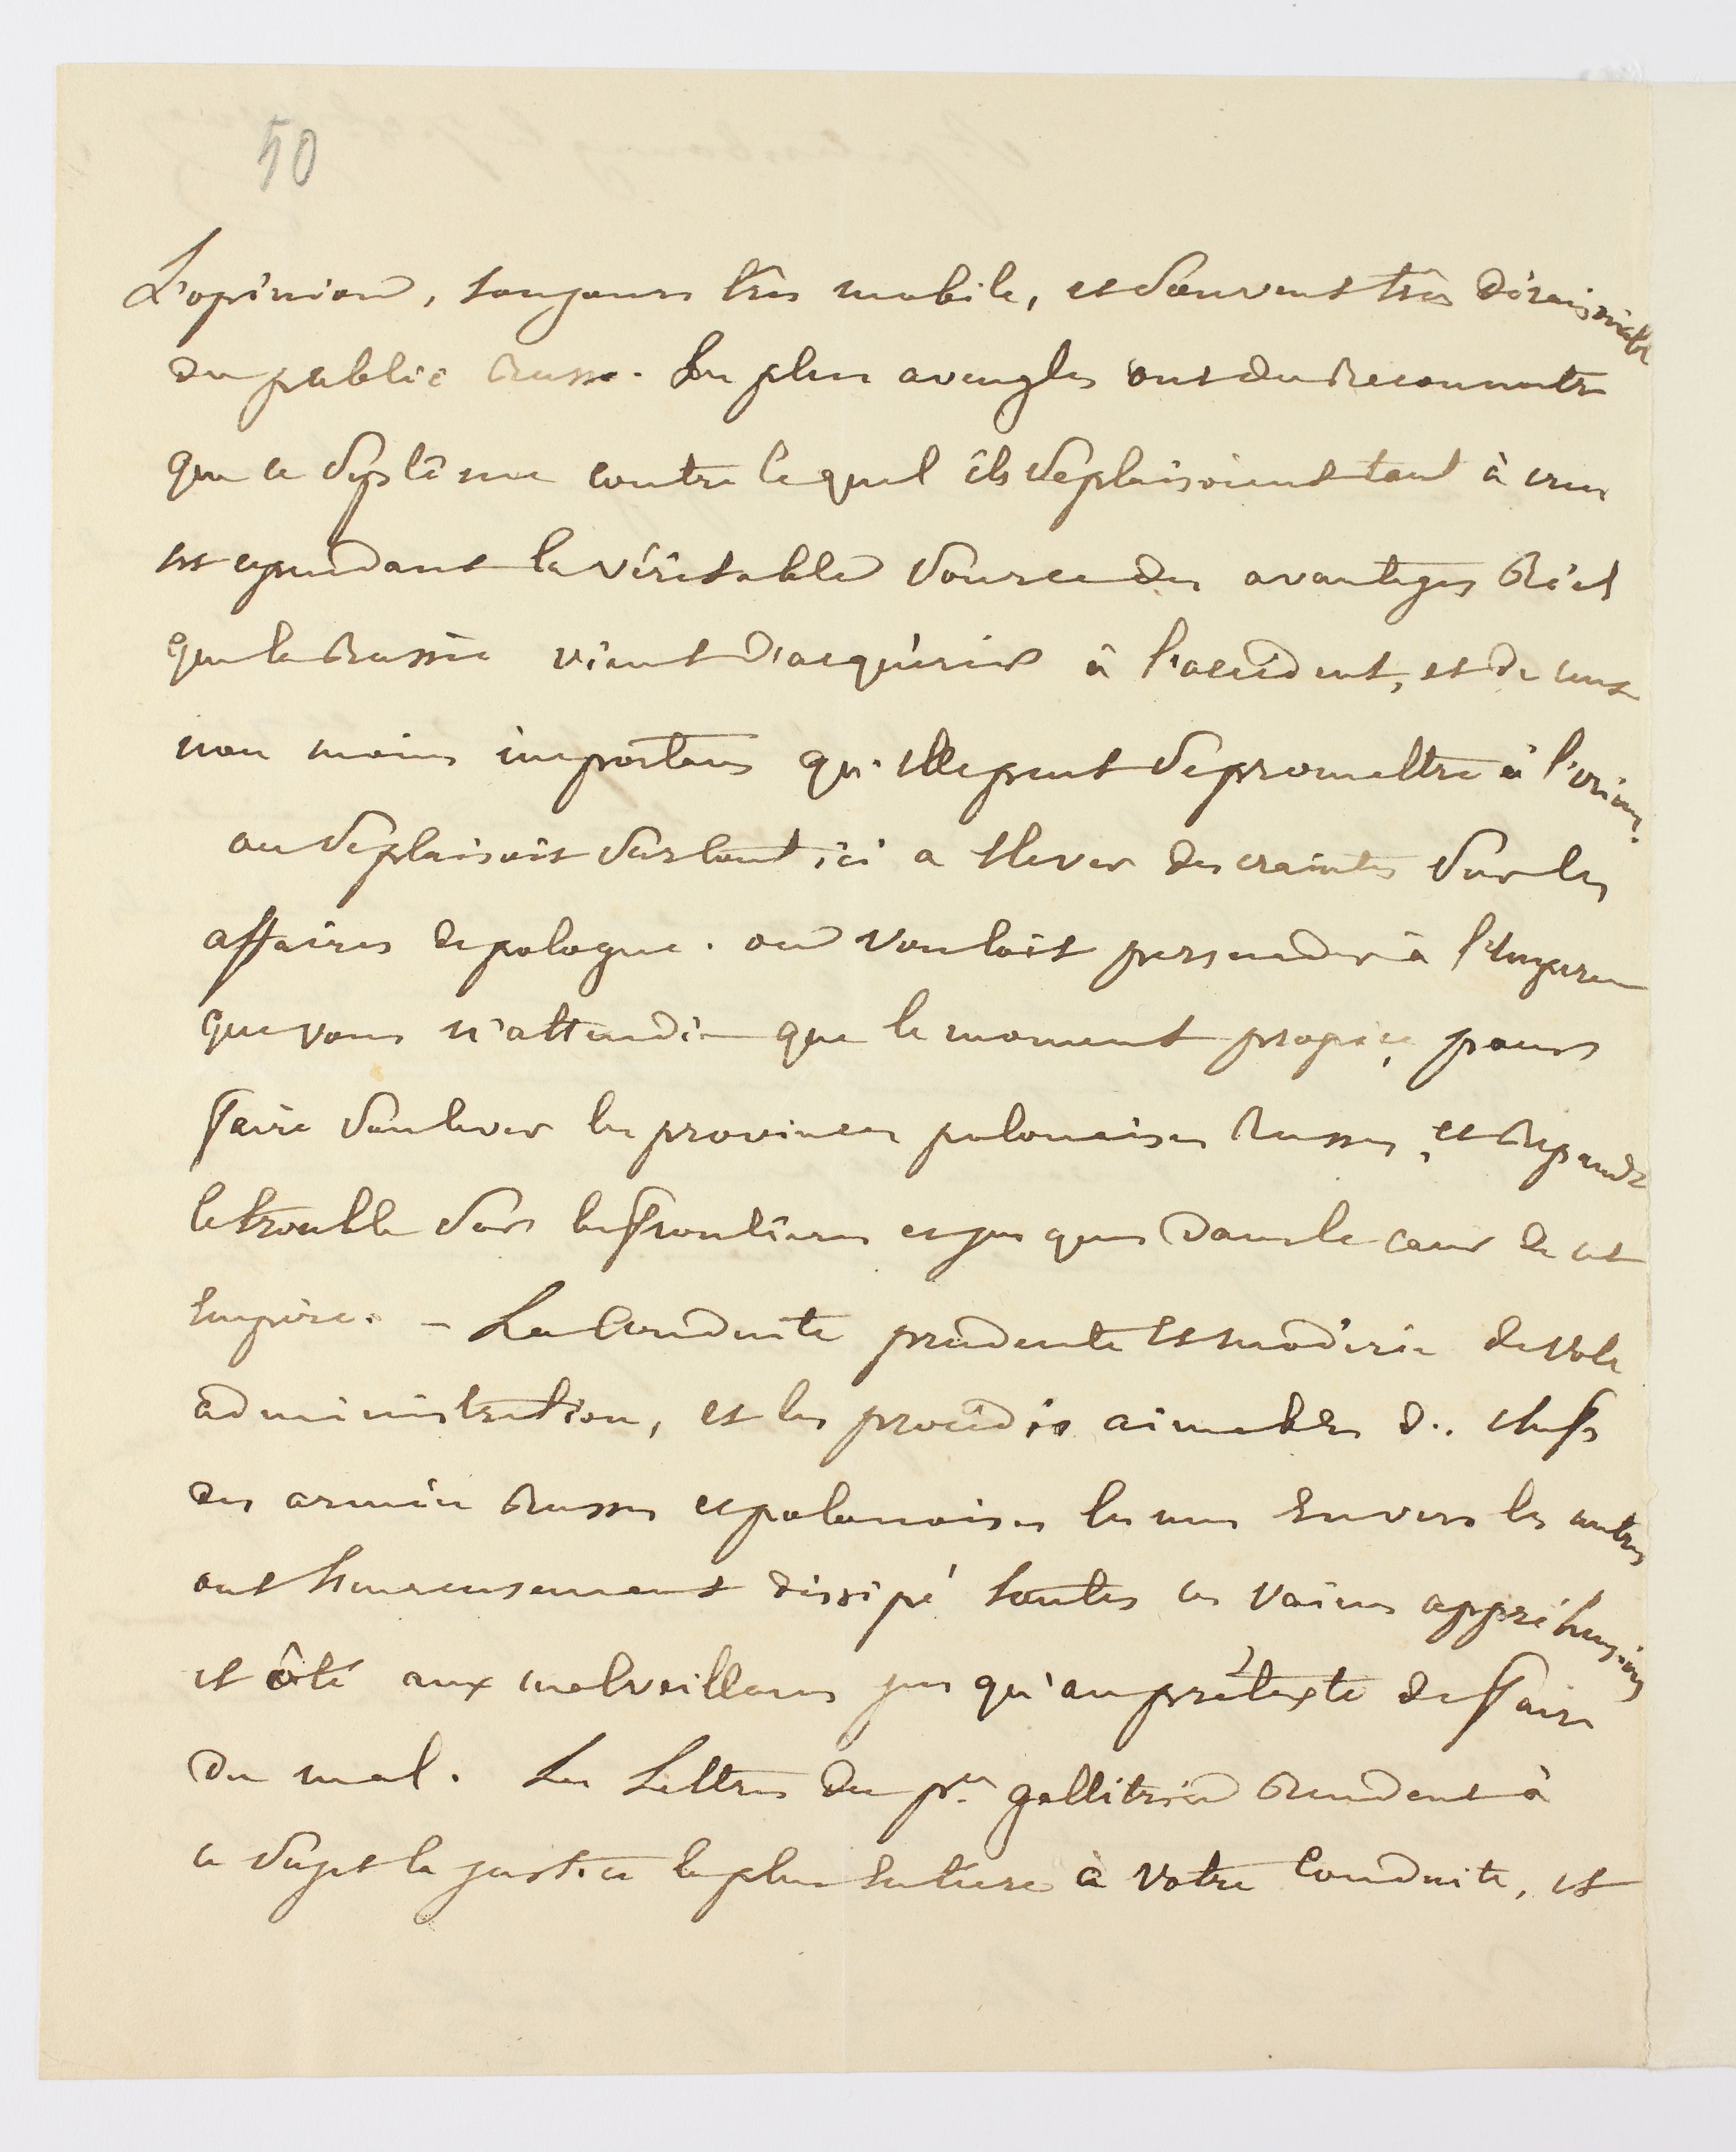 50
L'opinion, toujours très mobile, et souvent très déraisonnable
du public russe. Les plus aveugles ont du reconnoitre
que ce systême contre lequel ils se plaisoient tant à crier
est cependant la véritable source des avantages réels
que la Russie vient d'acquérir à l'occident, et de ceux
non moins importans qu'elle peut se promettre à l'orient.
on se plaisoit surtout ici a elever des craintes sur les
affaires de pologne. on vouloit persuader à l'Empereur
que vous n'attendiez que le moment propice, pour
faire soulever les provinces polonaises Russes, et repandre
le trouble sur les frontières et jusques dans le cœur de cet
Empire. - La Conduite prudente et modérée de votre
administration, et les procédés aimables des chefs
des armées Russes et polonaises les uns envers les autres
ont heureusement dissipé toutes ces vaines appréhensions
et ôté aux malveillans jusqu'au prétexte de faire
du mal. Les Lettres du pce gallitzin rendent à
ce sujet la justice la plus entière à votre conduite, et